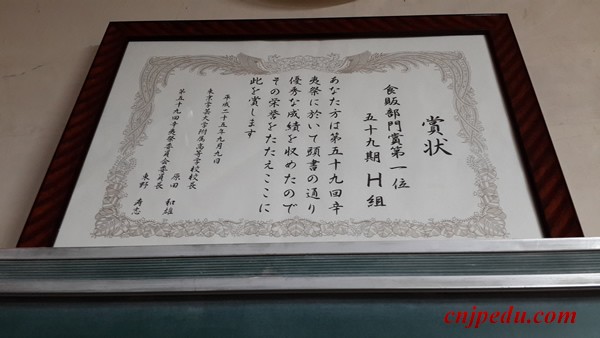 賞状
食販部門賞第一位
五十九期H組
あなた方は第五十九回辛
夷祭に於いて頭書の通り
優秀な成績を収めたので
その栄誉をたたえここに
此を賞します
平成二十五年九月九日
東京学芸大学附属高等学校校長
原田 和雄
第五十九回辛夷祭委員会委員長
東野 寿志
cnjpedu.com